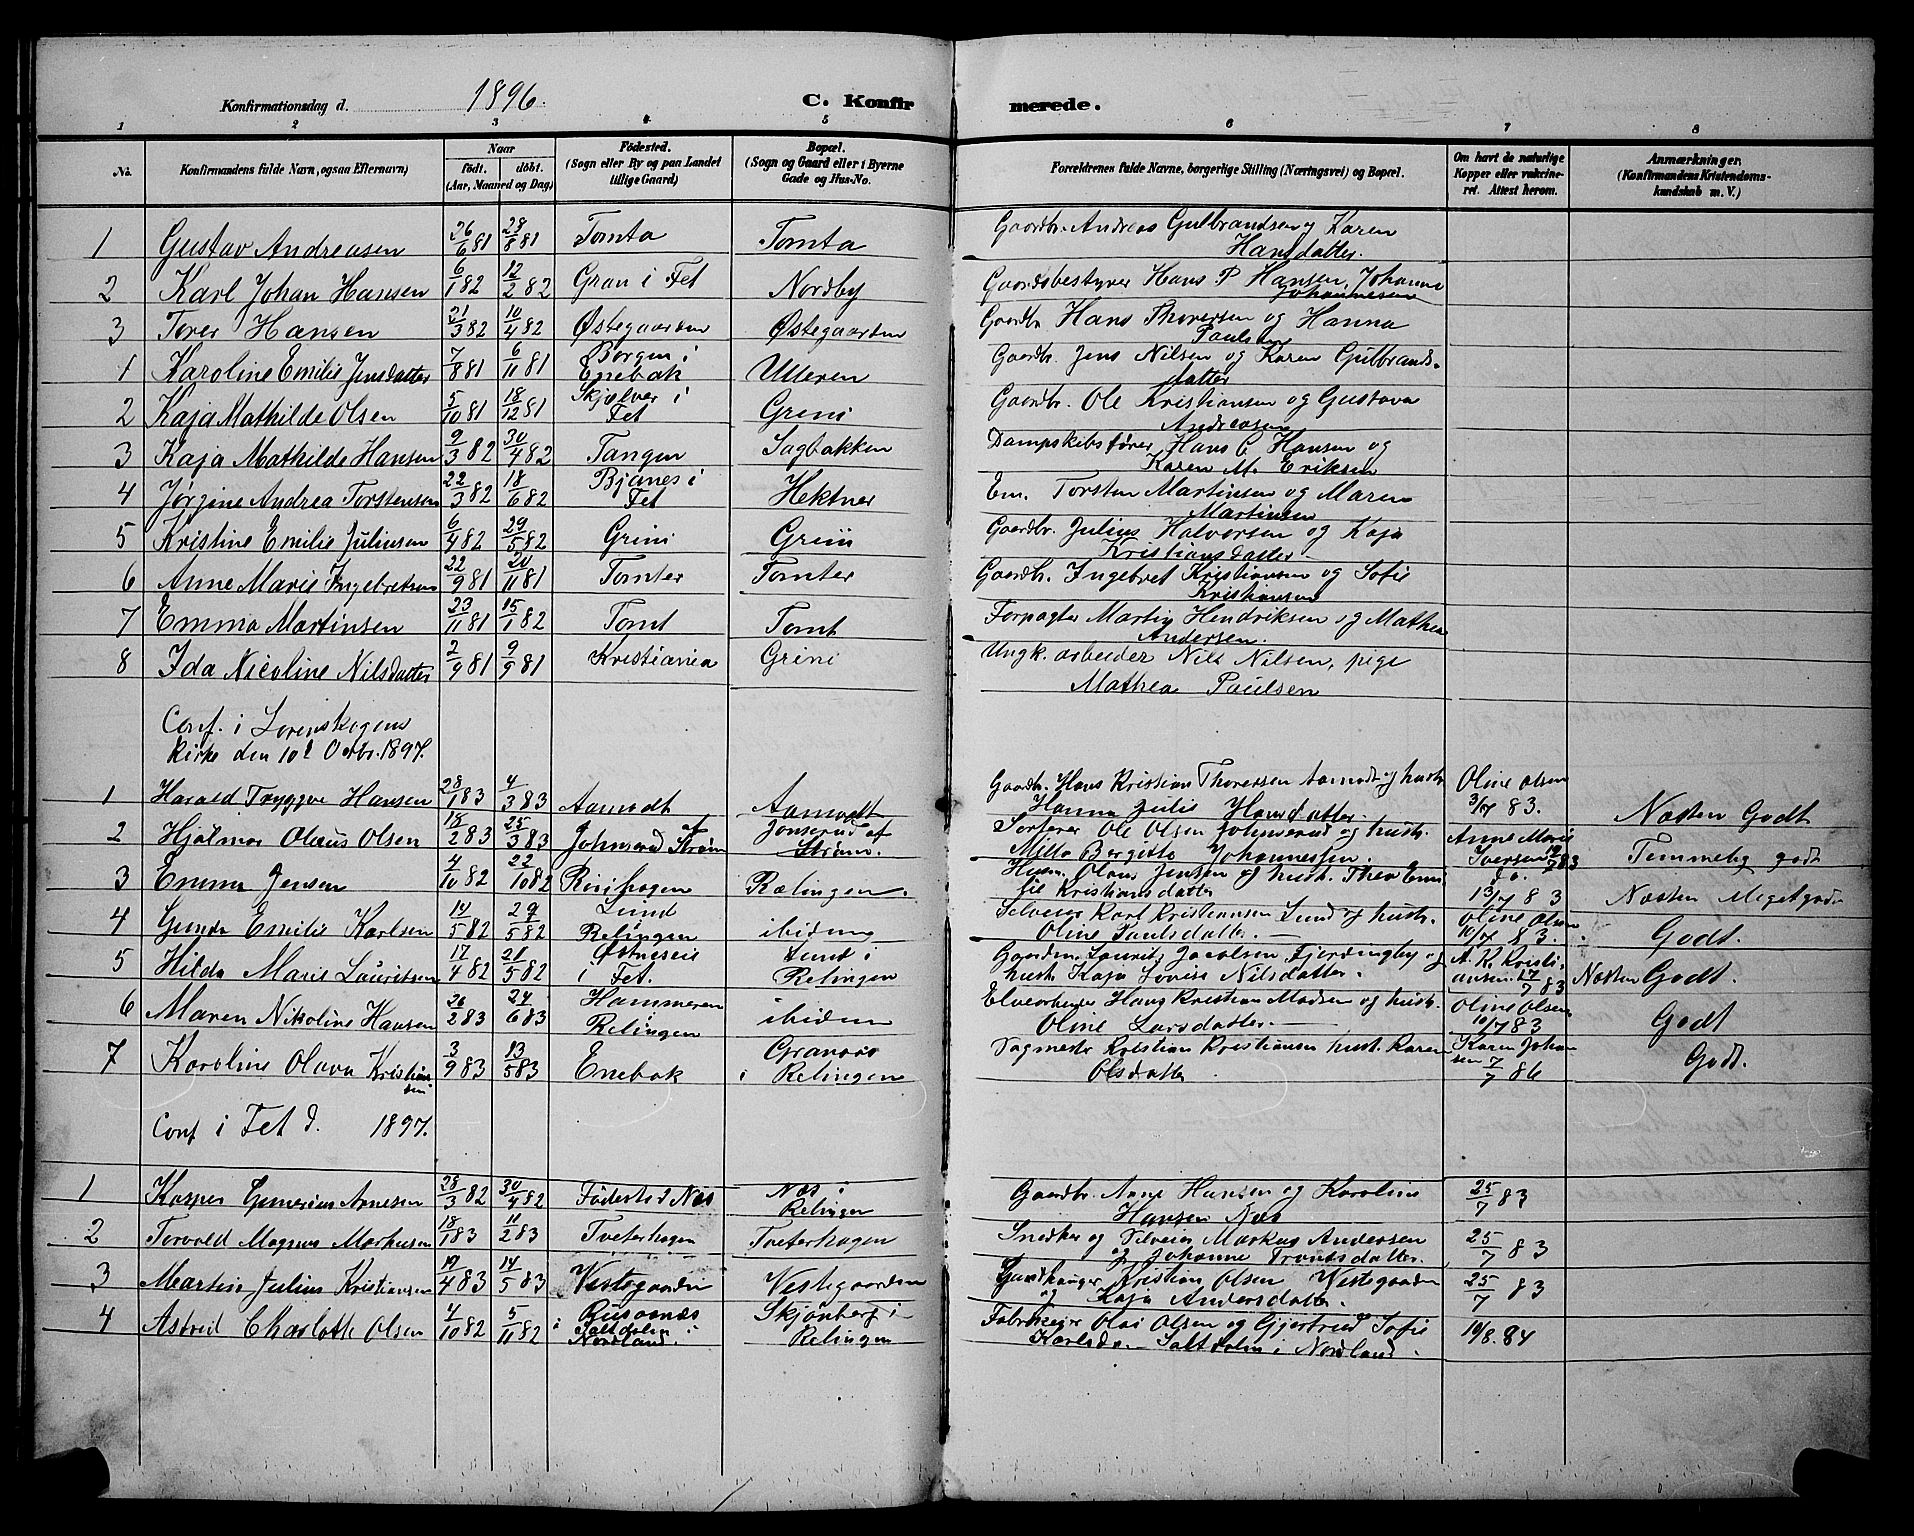 Konfirmationsdag d. 1896. C. Konfirmerede.
1 2 3 4 5 6 7 8
No. Konfirmandens fulde Navn, ogsaa Efternavn) Naar födt. döbt. (Aar, Maaned og Dag) Födested. (Sogn eller By og paa Landet tillige Gaard) Bopæl. (Sogn og Gaard eller i Byerne Gade og Hus-No. Forældrenes fulde Navne, borgerlige Stilling (Næringsvei) og Bopæl. Om havt de naturlige Kopper eller vakcineret. Attest herom. Anmærkninger. (Konfirmandens Kristendomskundskab m. V.)
1 Gustav Andreasen 26/6 81 28/8 81 Tomta Tomta Gaardbr. Andreas Gulbrandsen og Karen
Hansdatter.
2 Karl Johan Hansen 6/1 82 12/2 82 Gran i Fet Nordby Gaardsbestyrer Hans P Hansen, Johanne
Johannesen
3 Torer Hansen 21/3 82 10/4 82 Østegaarden Østegaarden Gaardbr Hans Thoresen og Hanna
Paulsen
1 Karoline Emilie Jensdatter 7/8 81 6/11 81 Borgen i Enebak Ulleren Gaardbr. Jens Nilsen og Karen Gulbrands-
datter
2 Kaja Mathilde Olsen 5/10 81 18/12 81 Skjælver i Fet Grini Gaardbr. Ole Kristiansen og Gustava
Andreasen
3 Kaja Mathilde Hansen 9/3 82 30/4 82 Tangen Sagbakken Dampskibsfører Hans C Hansen og
Karen M. Eriksen
4 Jørgine Andrea Torstensen 22/3 82 18/6 82 Bjanes i Fet Hektner Em. Torsten Martinsen og Maren
Martinsen
5 Kristine Emilie Juliusen 6/4 82 29/5 82 Grini Grini Gaardbr. Julius Halvorsen og Kaja
Kristiansdatter.
6 Anne Marie Ingebretsen 22/9 81 20/11 81 Tomter Tomter Gaardbr. Ingebret Kristiansen og Sofie
Kristiansen
7 Emma Martinsen 23/11 81 15/1 82 Tomt Tomt Forpagter Martin Hendriksen og Mathea
Andersen.
8 Ida Nicoline Nilsdatter 2/9 81 9/9 81 Kristiania Grini Ungk. arbeider Nils Nilsen, pige
Mathea Paulsen
Conf. i Lorenskogens
Kirke den 10de Octbr. 1897.
1 Harald Tryggve Hansen 28/1 83 4/3 83 Aamodt Aamodt Gaardbr. Hans Kristian Thoressen Aamodt og hustr Oline Olsen
Hanna Julie Hansdatter. 3/7 83. Næsten Godt
2 Hjalmar Olaus Olsen 18/2 83 25/3 83 Johnsrud Strøm Jonsrud af Strøm. Ole Olsen Johnsrud og hustr. Anne Marie
Milla Bergitte Johannessen. Iversen 12/7 83 Temmelig godt
3 Emma Jensen 4/10 82 22/10 82 Ririhagen Rælingen. Husm. Olaus Jensen og hust. Thea Emi-
lie Kristiansdatter 13/7 83 Næsten Meget godt
4 Gunda Emilie Karlsen 14/5 82 29/5 82 Lund Relingen ibidem Selveier Karl Kristiansen Lund og hustr. Oline Olsen
Oline Paulsdatter. 10/7 83. Godt.
5 Hilda Marie Lauritsen 17/4 82 21/5 82 Østneseie i Fet. Lund i Relingen Gaardm. Laurits Jacobsen Fjerdingby og A. K. Kristi-
hust Kaja Lovise Nilsdatter. ansen. 17/7 83 Næsten Godt.
6 Maren Nikoline Hansen 26/2 83 24/6 83 Hammeren Relingen ibidem Elvearbeider Hans Kristian Madsen og hustr. Oline Olsen
Oline Larsdatter. 10/7 83 Godt
7 Karoline Olava Kristiansen 3/9 83 13/5 83 Enebak Granaas i Relingen Sagmestr Kristian Kristiansen hust. Karen Karen Johan
Olsdatter sen 7/7 86 Godt.
Conf i Fet d. 1897.
1 Kasper Arnesen 28/3 82 30/4 82 Födested Næs Næs i Relingen Gaardbr. Arne Hansen og Karoline
Hansen Næs 25/7 83
2 Torvald Magnus Markusen 18/1 83 11/2 83 Tveterhagen Tveterhagen Snedker og Selveier Markus Andersen
og Johanne Trondsdatter. 25/7 83
3 Martin Julius Kristiansen 19/4 83 14/5 83 Vestegaarden Vestegaarden Kristian Olsen Vestegaarden
og Kaja Andersdatter. 25/7 83
4 Astrid Charlotte Olsen 4/10 82 5/11 82 i Saltdalen i Nordland. Skjønberg i Relingen Olai Olsen og Gjertrud Sofie
Karlsda. Saltdalen i Nordland. 19/8. 84